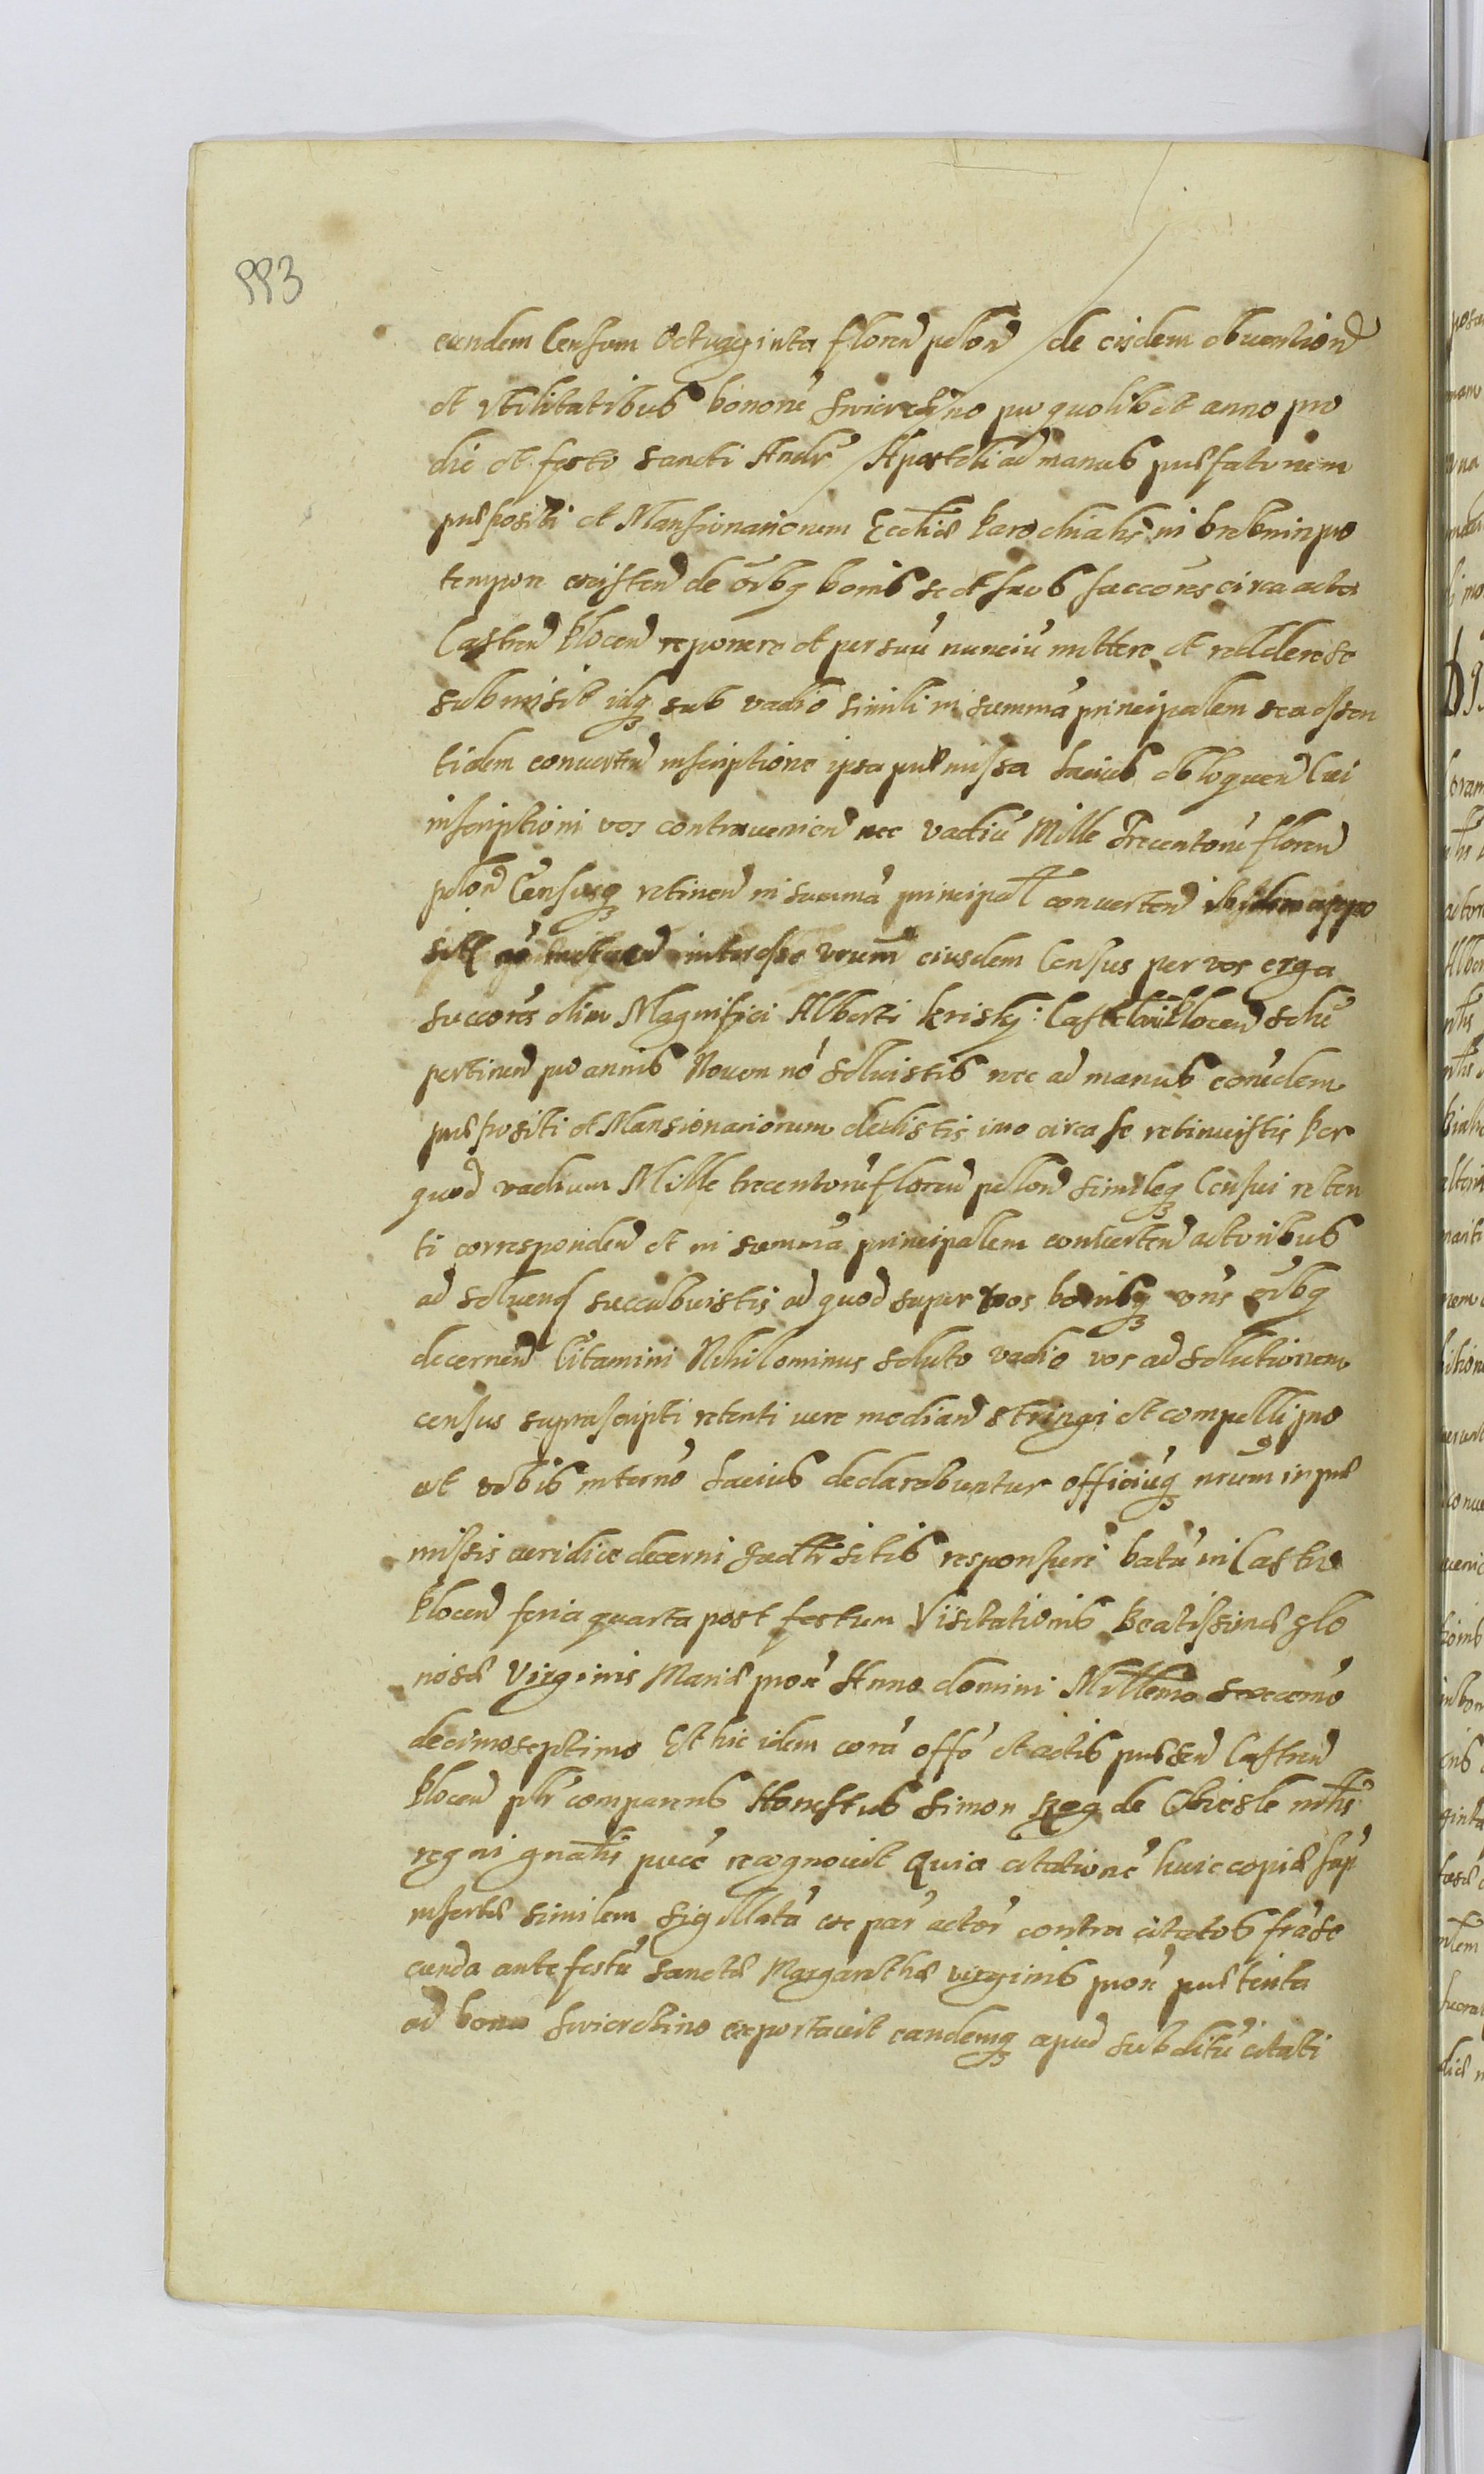 993
eundem Censum Octuaginta floren polon de eisdem obuention
et vtilitatibus bonorũ Swierczyno pro quolibet anno pro
die et festo sancti Andr Apostoli ad manus præfatorum
præpositi et Mansionariorum Eccliæ Parochialis in pro
tempore existen de oibq bonis se et suos succores circa acta
Castren Plocen reponere et per suũ nunciũ mittere et reddere se
submisit idq sub vadio simili in summã principalem seu essen
tialem conuerten inscriptione ipsa præmissa lacius obloquen Cui
inscriptioni vos contrauenien nec vadiũ Mille Trecentorũ floren
polon Censusq retinen in summã principal conuerten ibidem appo
siti interesse vrum eiusdem Census per vos erga
succores olim Magnifici Alberti Krisky: Castelani Plocen solũ
pertinen pro annis Nouem nõ soluistis nec ad manus eorũdem
præpositi et Mansionariorum dedistis imo circa se retinuistis Per
quod vadium Mille trecentorũ floren pollon simileq Censui reten
ti corresponden et in summã principalem conuerten actoribus
ad soluend succubuistis ad quod super vos bonisq vris oibq
decernen Citamini Nihilominus soluto vadio vos ad solutionem
census suprascripti retenti vere median stringi et compelli pro
ut vobis in termõ lacius declarabuntur officiũq nrum in præ
missis veridice decerni Iudltr sitis responsuri Datũ in Castro
Plocen feria quarta post festum Visitationis Beatissimæ glo
riosæ Virginis Mariæ proxĩ Anno domini Millemo sexcemõ
decimoseptimo Et hic idem corã offõ et actis præsen Castren
Plocen plr comparens Honestus Simon de mtlis
regni gnalis pucẽ recognouit Quia citationẽ huic copiæ sup
insertæ similem sigillatã ex par actor contra citatos fria se
cunda ante festũ sanctæ Margarethæ virginis proxĩ præterita
ad bona Swierczino exportauit eandemq apud subditũ citati